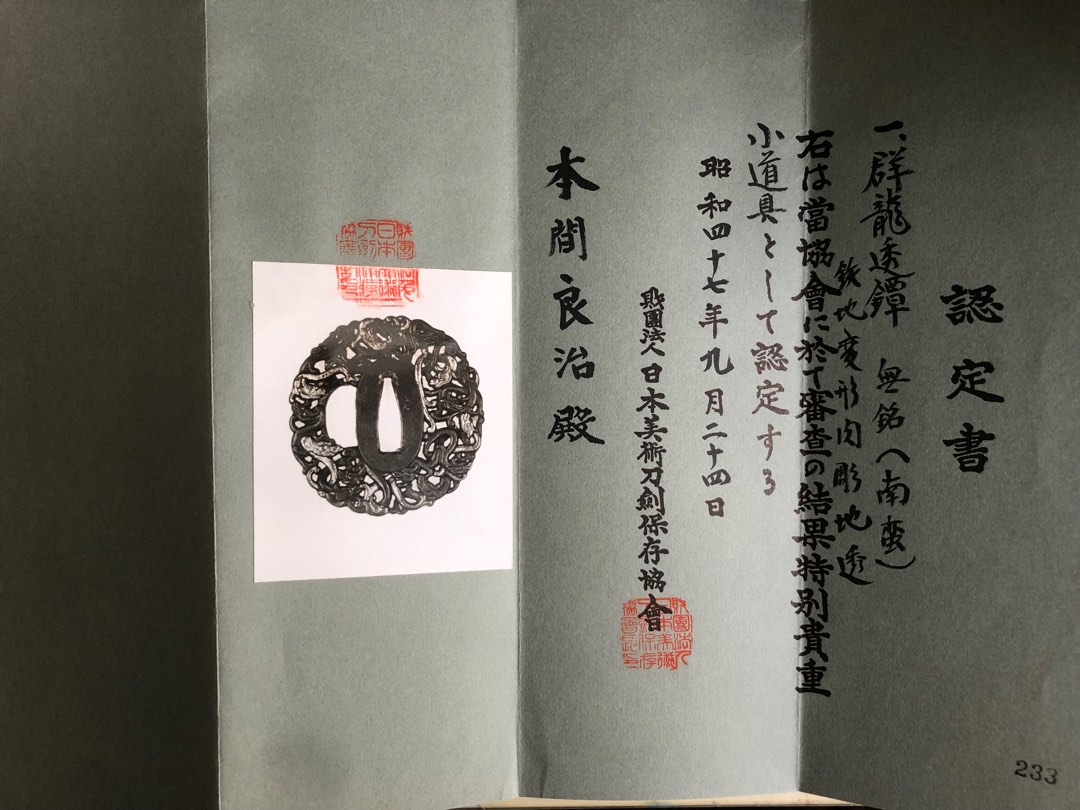 認定書
一、群龍透鐔 無銘(南蛮)
鉄地変形肉彫地透
右は當協會に於て審査の結果特別貴重
小道具として認定する
昭和四十七年九月二十四日
財團法人日本美術刀劍保存協會
本間良治殿
233